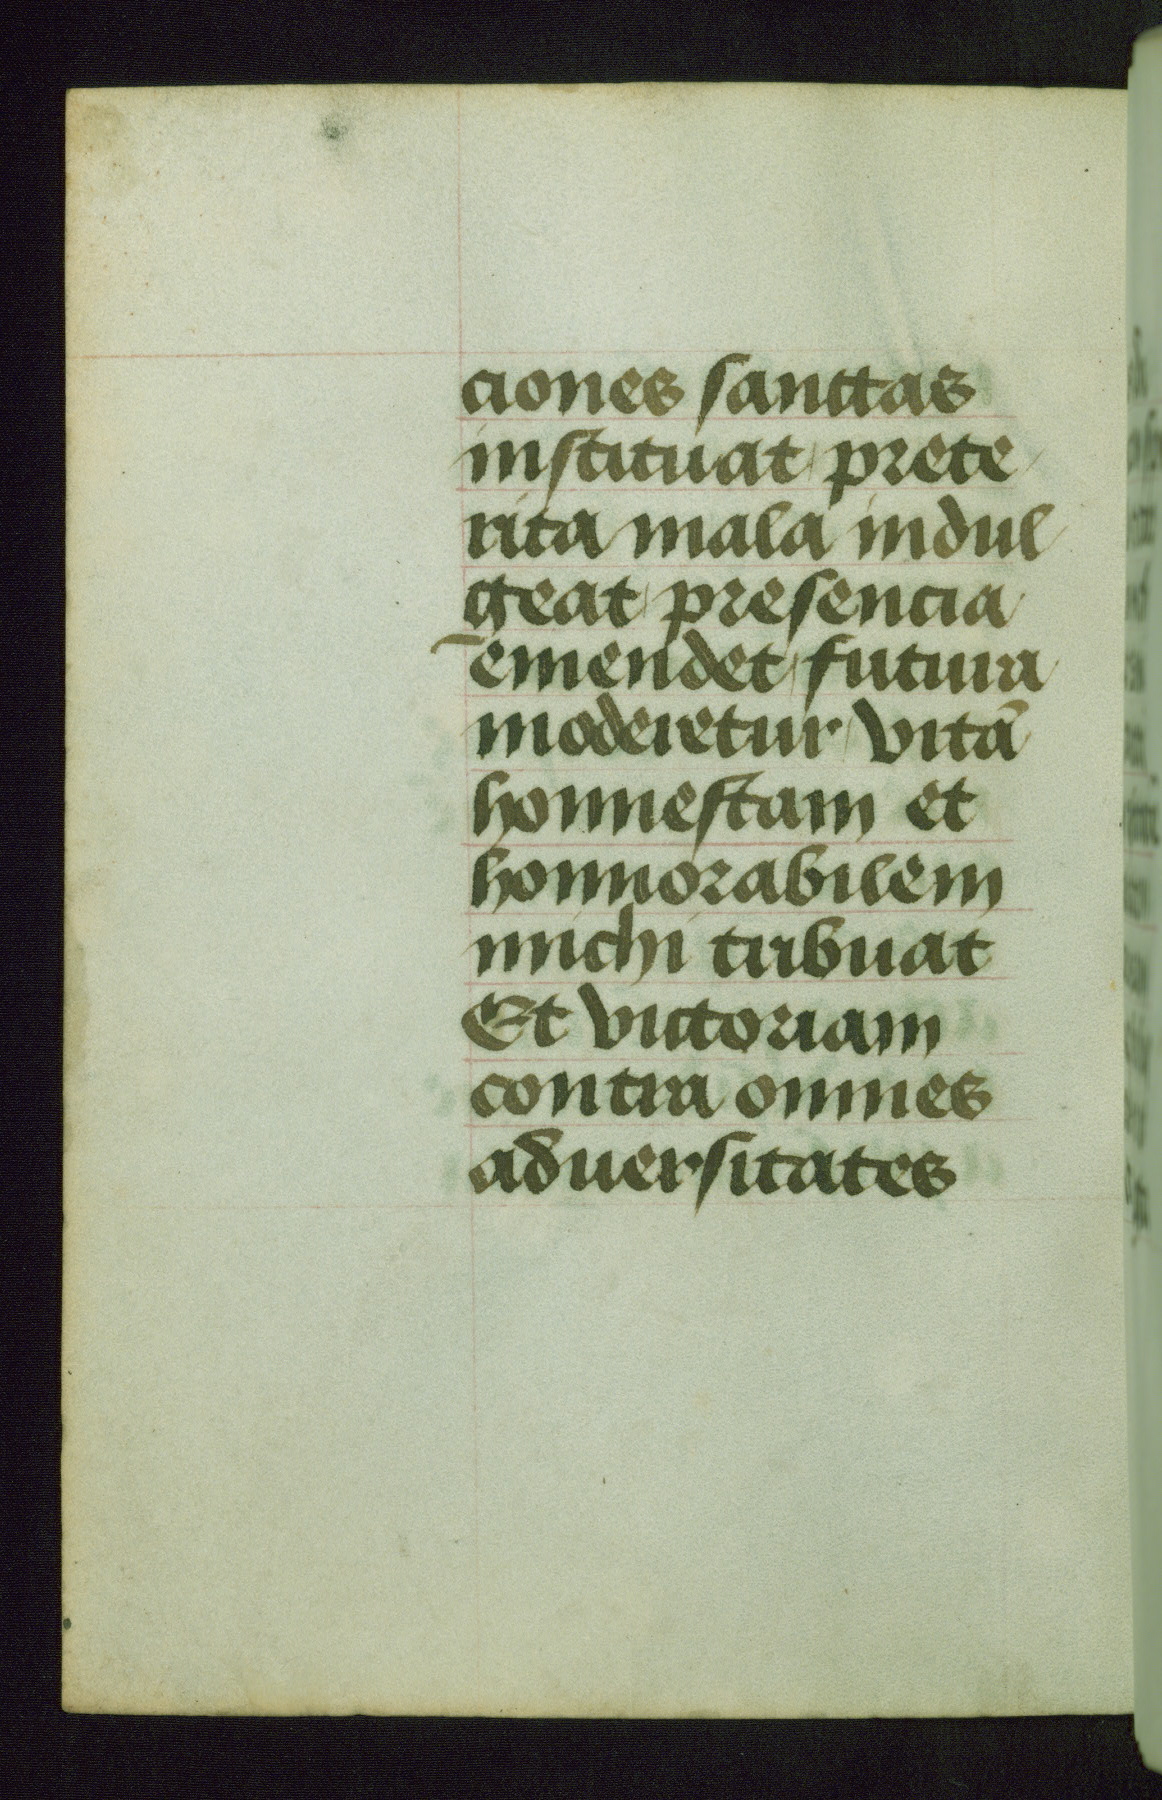 ciones sanctas
instituat prete
rita mala indul
geat presencia
emendet futura
moderetur vitā
honnestam et
honnorabilem
michi tribuat
Et victoriam
contra omnes
aduersitates